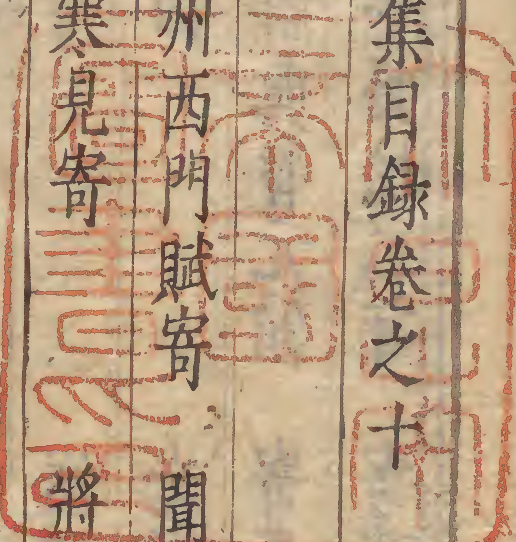 集目録卷之十
州西門賦寄 聞
寒見寄 將